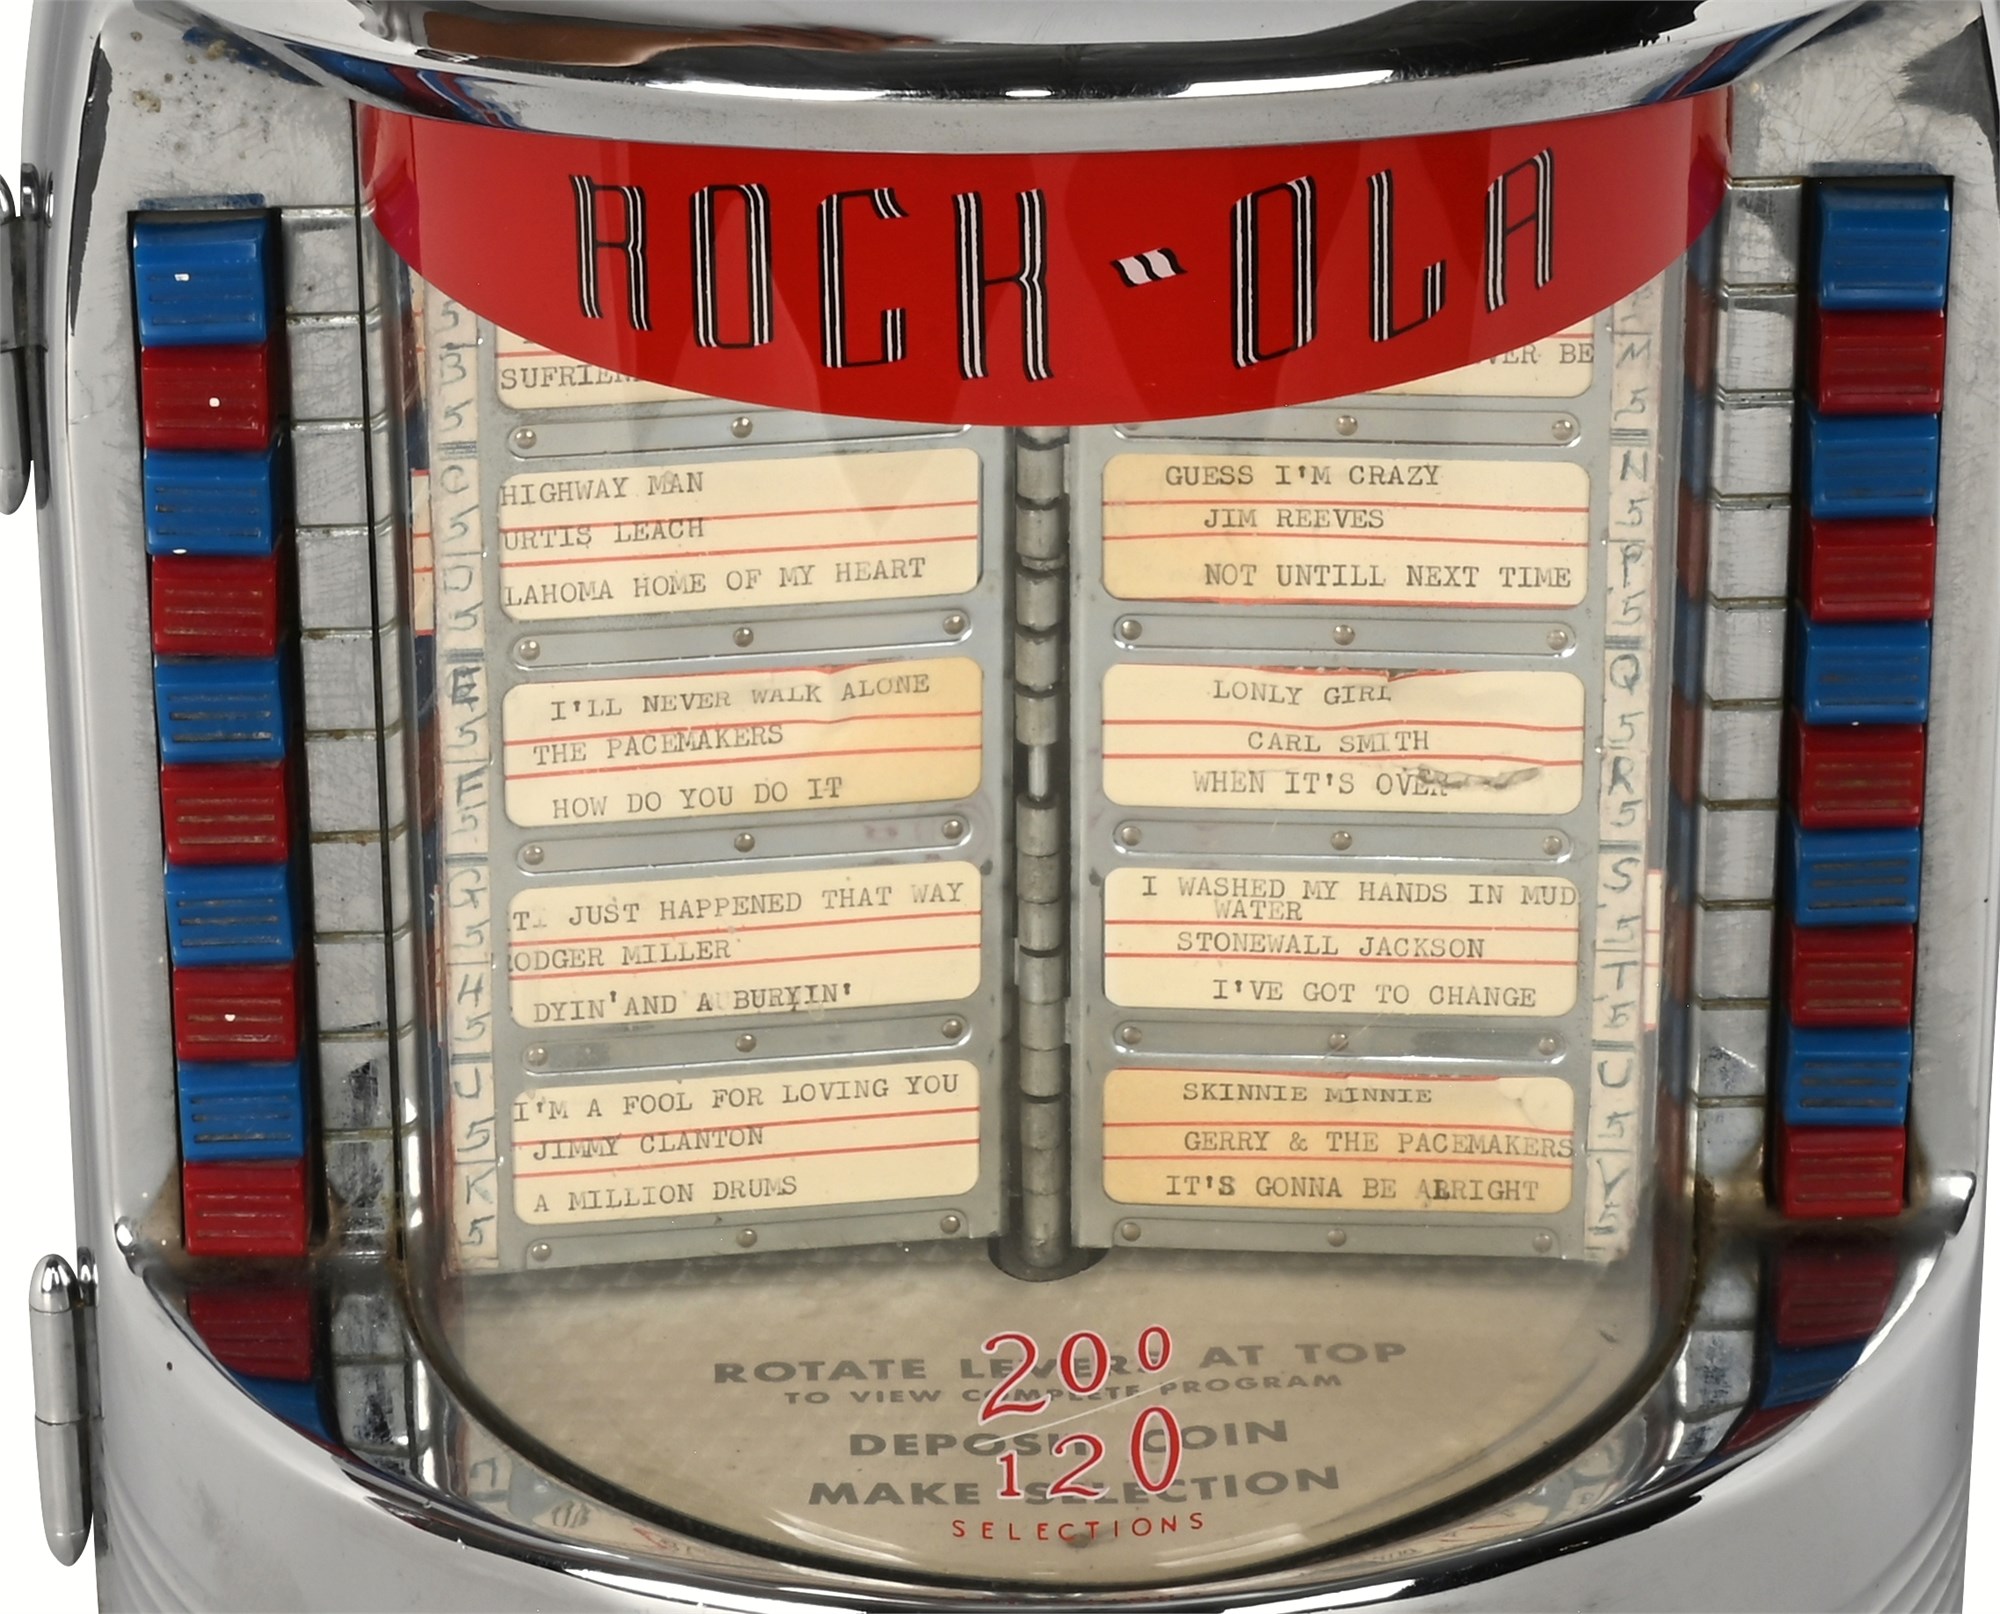 ROCK-OLA
VER BE
HIGHWAY MAN
URTIS LEACH
LAHOMA HOME OF MY HEART
I'LL NEVER WALK ALONE
THE PACEMAKERS
HOW DO YOU DO IT
JUST HAPPENED THAT WAY
ODGER MILLER
DYIN' AND A BURYIN'
I'M A FOOL FOR LOVING YOU
JIMMY CLANTON
A MILLION DRUMS
GUESS I'M CRAZY
JIM REEVES
NOT UNTILL NEXT TIME
LONLY GIRL
CARL SMITH
WHEN IT'S OVER
I WASHED MY HANDS IN MUD
WATER
STONEWALL JACKSON
I'VE GOT TO CHANGE
SKINNIE MINNIE
GERRY & THE PACEMAKERS
IT'S GONNA BE ALRIGHT
N5
P5
Q5
R5
S5
T5
U5
V5
ROTATE LEVERS AT TOP
TO VIEW COMPLETE PROGRAM
DEPOSIT COIN
MAKE SELECTION
200
120
SELECTIONS